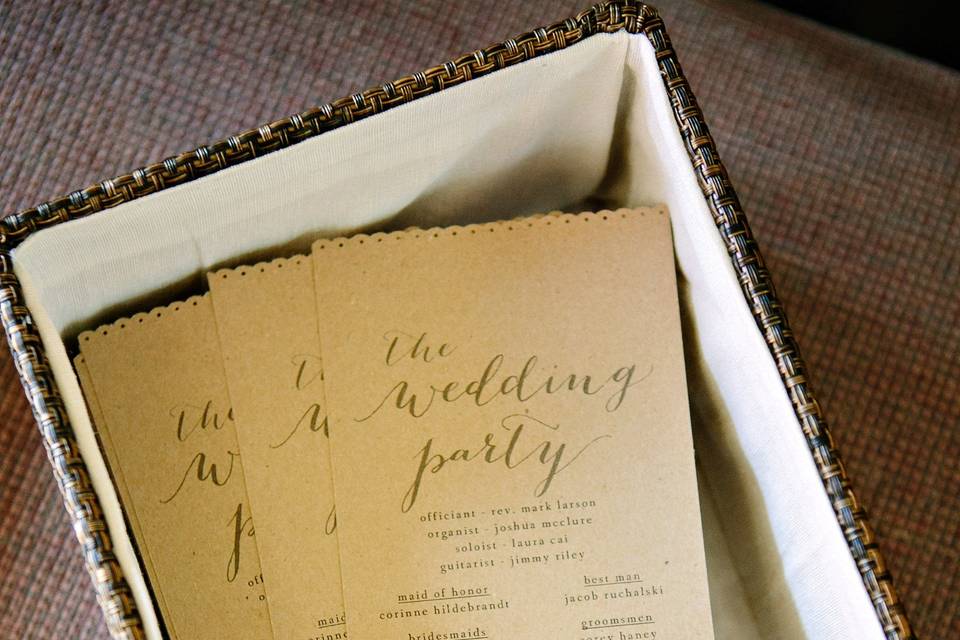 the
wedding
party
officiant - rev. mark larson
organist - joshua mcclure
soloist - laura cai
guitarist - jimmy riley
maid of honor
corinne hildebrandt
bridesmaids
best man
jacob ruchalski
groomsmen
corey haney
the
w
p
th
w